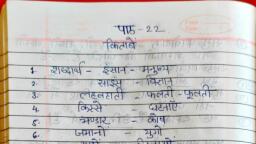 पाठ-22
किताबें
1. शब्दार्थ - इंसान - मनुष्य
2. साइंस - विज्ञान
3. लहलहाती - फलती-फूलती
4. किस्से - घटनाएँ
5. भण्डार - कोष
6. जमानों - युगों